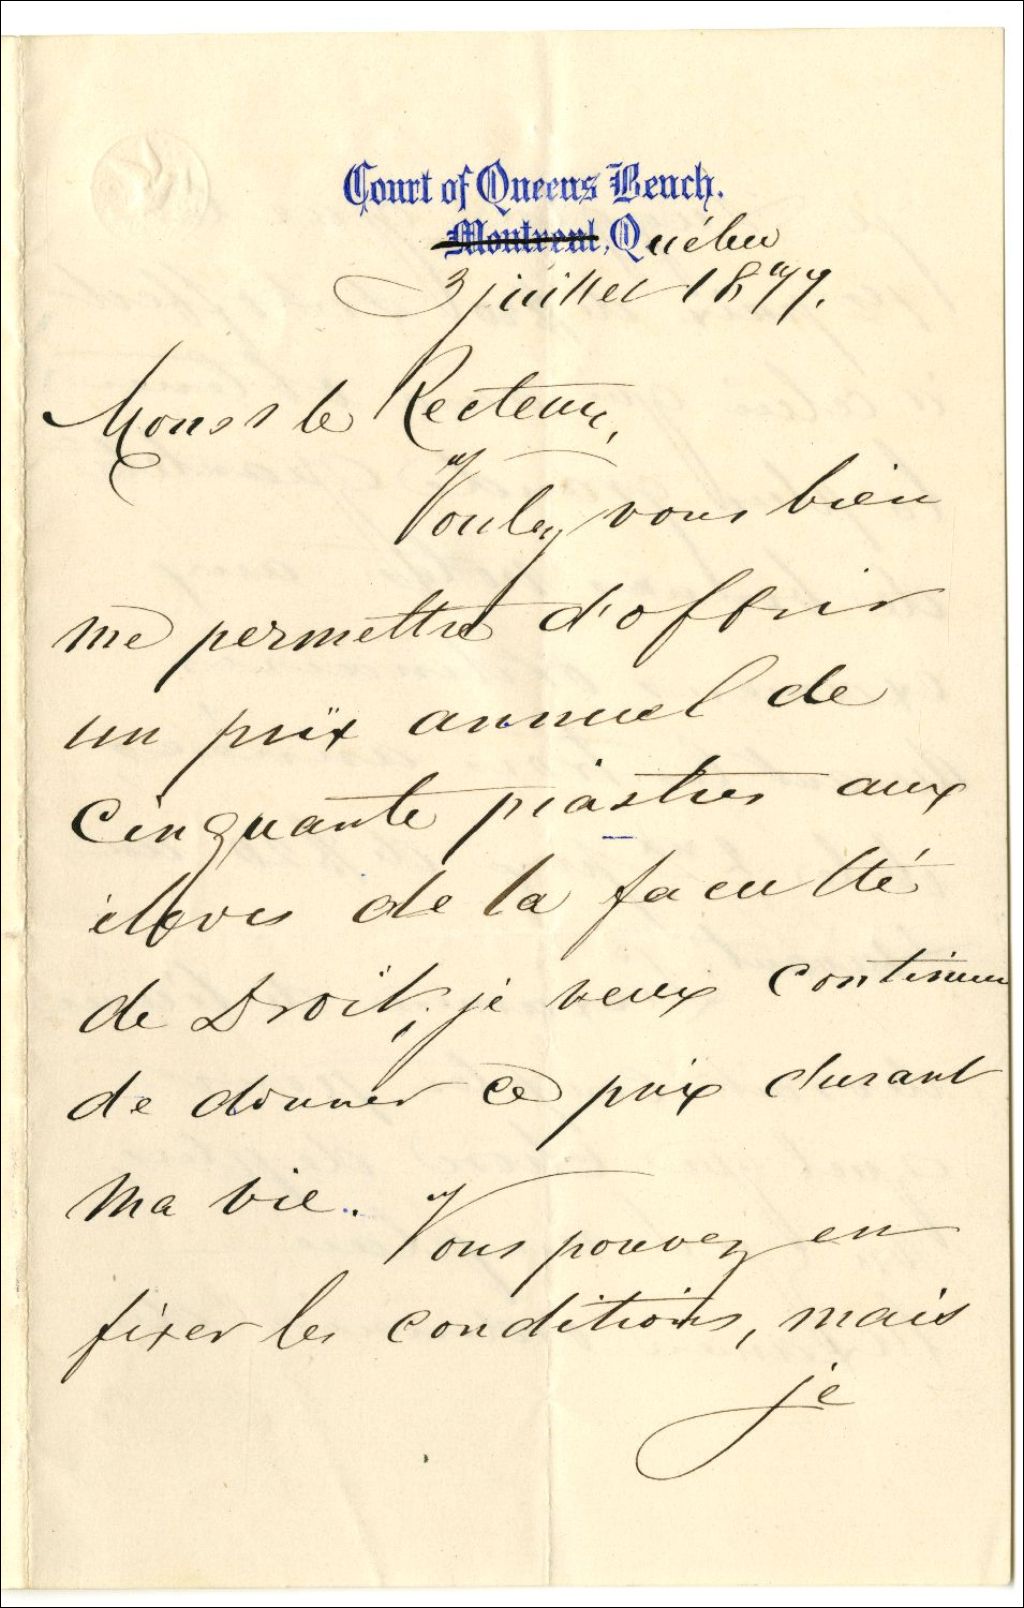 Court of Queens Bench.
Montreal, Québec
3 juillet 1877.
Monsr le Recteur,
Voulez vous bien
me permettre d'offrir
un prix annuel de
cinquante piastres aux
élèves de la faculté
de Droit, je veux continuer
de donner ce prix durant
ma vie. Vous pouvez en
fixer les conditions, mais
je